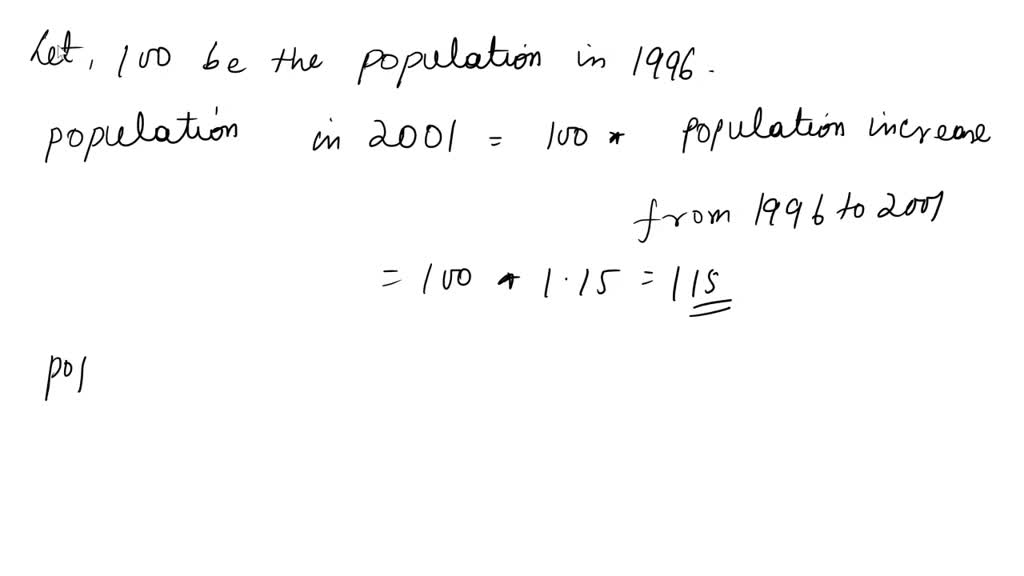 Let, 100 be the population in 1996.
population in 2001 = 100 * population increase
from 1996 to 2001
= 100 * 1.15 = 115
pop